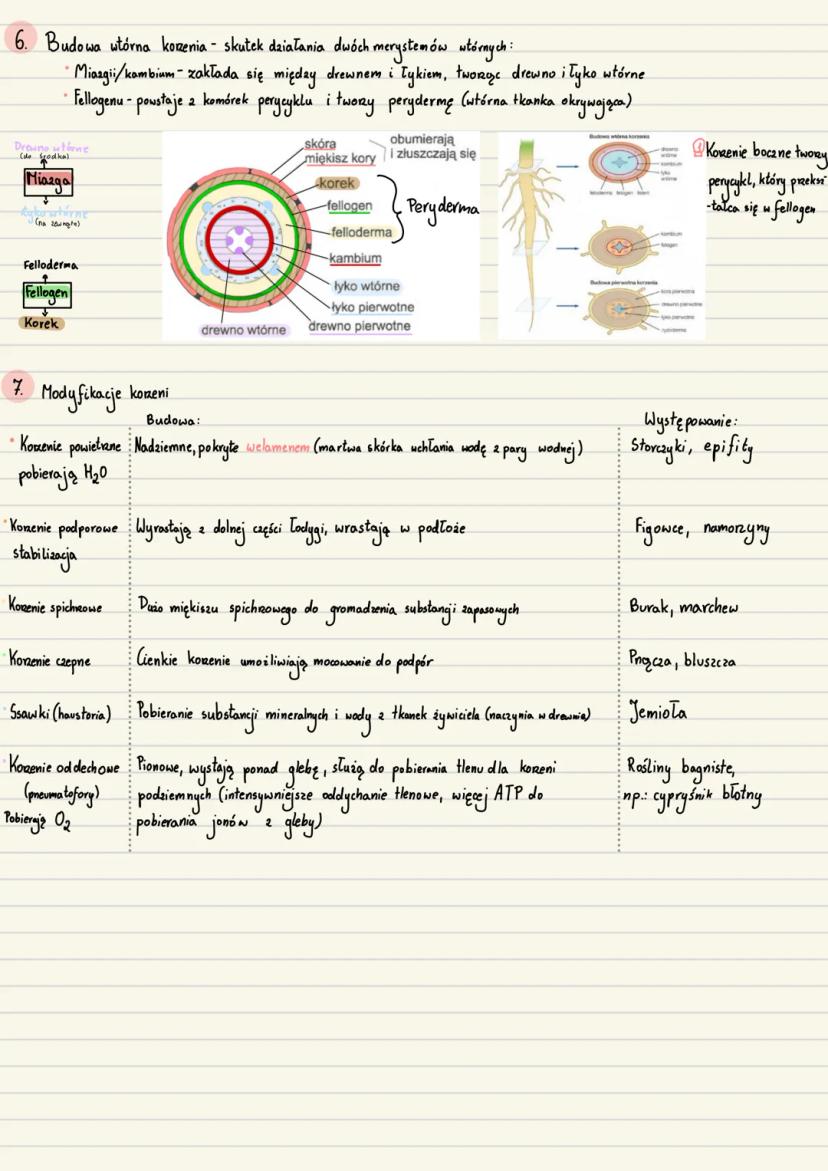 6. Budowa wtórna korzenia - skutek działania dwóch merystemów wtórnych:
• Miazgi/kambium - zakłada się między drewnem i łykiem, tworząc drewno i łyko wtórne
• Fellogenu - powstaje z komórek perycyklu i tworzy perydermę (wtórna tkanka okrywająca)
Drewno wtórne
(do środka)
Miazga
Łyko wtórne
(na zewnątrz)
Felloderma
Fellogen
Korek
skóra
miękisz kory
obumierają
i złuszczają się
korek
fellogen
felloderma
Peryderma
kambium
łyko wtórne
łyko pierwotne
drewno pierwotne
drewno wtórne
Budowa wtórna korzenia
drewno
wtórne
kambium
łyko
wtórne
felloderma fellogen felem
kambium
fellogen
Budowa pierwotna korzenia
kora pierwotna
drewno pierwotne
łyko pierwotne
ryzoderma
Korzenie boczne tworzy
perycykl, który przeksz-
-tałca się w fellogen
7. Modyfikacje korzeni
Budowa:
Występowanie:
• Korzenie powietrzne Nadziemne, pokryte welamenem (martwa skórka uchłania wodę z pary wodnej) Storczyki, epifity
pobierają H₂O
• Korzenie podporowe Wyrastają z dolnej części łodygi, wrastają w podłoże Figowce, namorzyny
stabilizacja
• Korzenie spichrzowe Dużo miękiszu spichrzowego do gromadzenia substancji zapasowych Burak, marchew
• Korzenie czepne Cienkie korzenie umożliwiają mocowanie do podpór Pnącza, bluszcza
• Ssawki (haustoria) Pobieranie substancji mineralnych i wody z tkanek żywiciela (naczynia w drewnie) Jemioła
• Korzenie oddechowe Pionowe, wystają ponad glebę, służą do pobierania tlenu dla korzeni Rośliny bagniste,
(pneumatofory) podziemnych (intensywniejsze oddychanie tlenowe, więcej ATP do np.: cypryśnik błotny
Pobierają O₂ pobierania jonów z gleby)